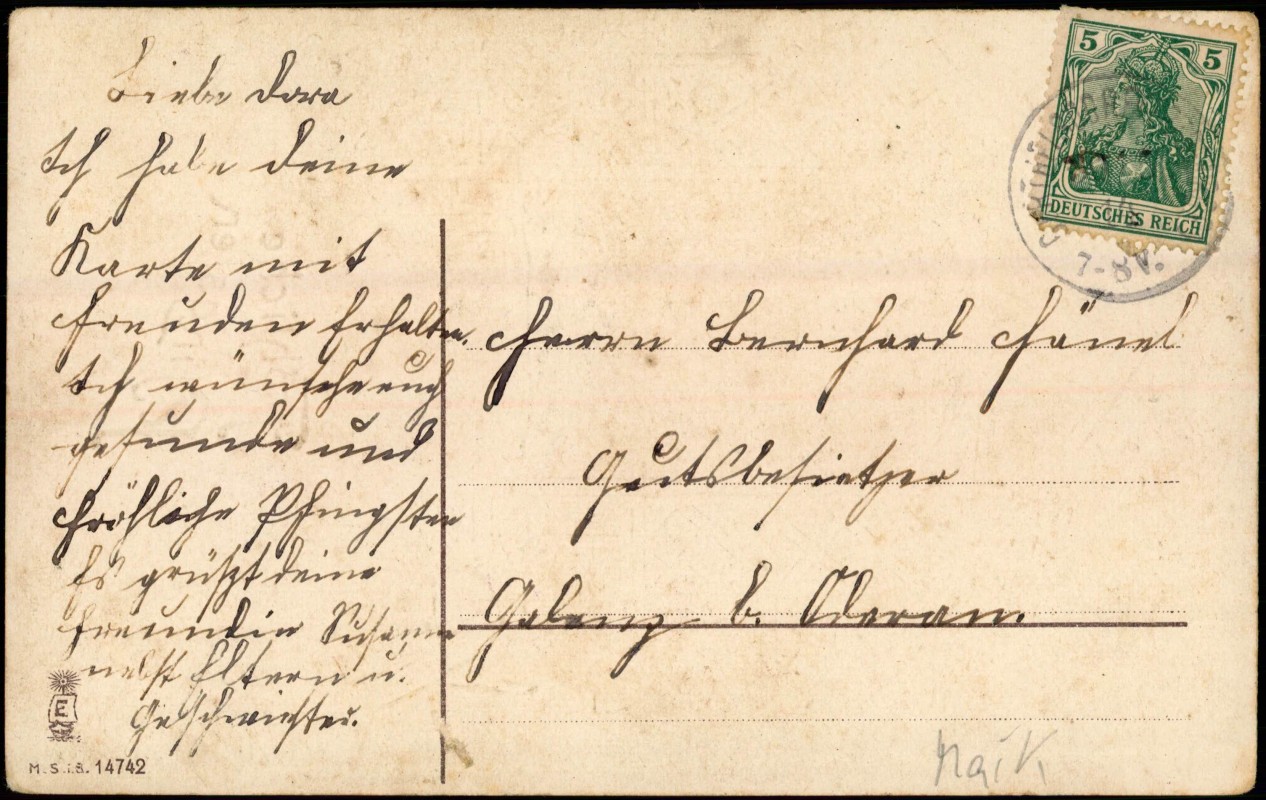 Liebe Dora
Ich habe deine
Karte mit
Freuden Erhalten.
Ich wünsche euch
gesunde und
Fröhliche Pfingsten
Es grüßt deine
Freundin Susanne
nebst Eltern u.
Geschwister.
M.S.i.B. 14742
5 5
DEUTSCHES REICH
7-8V.
Herrn Bernhard Hänel
Gutsbesietzer
Gelenz b. Oderan.